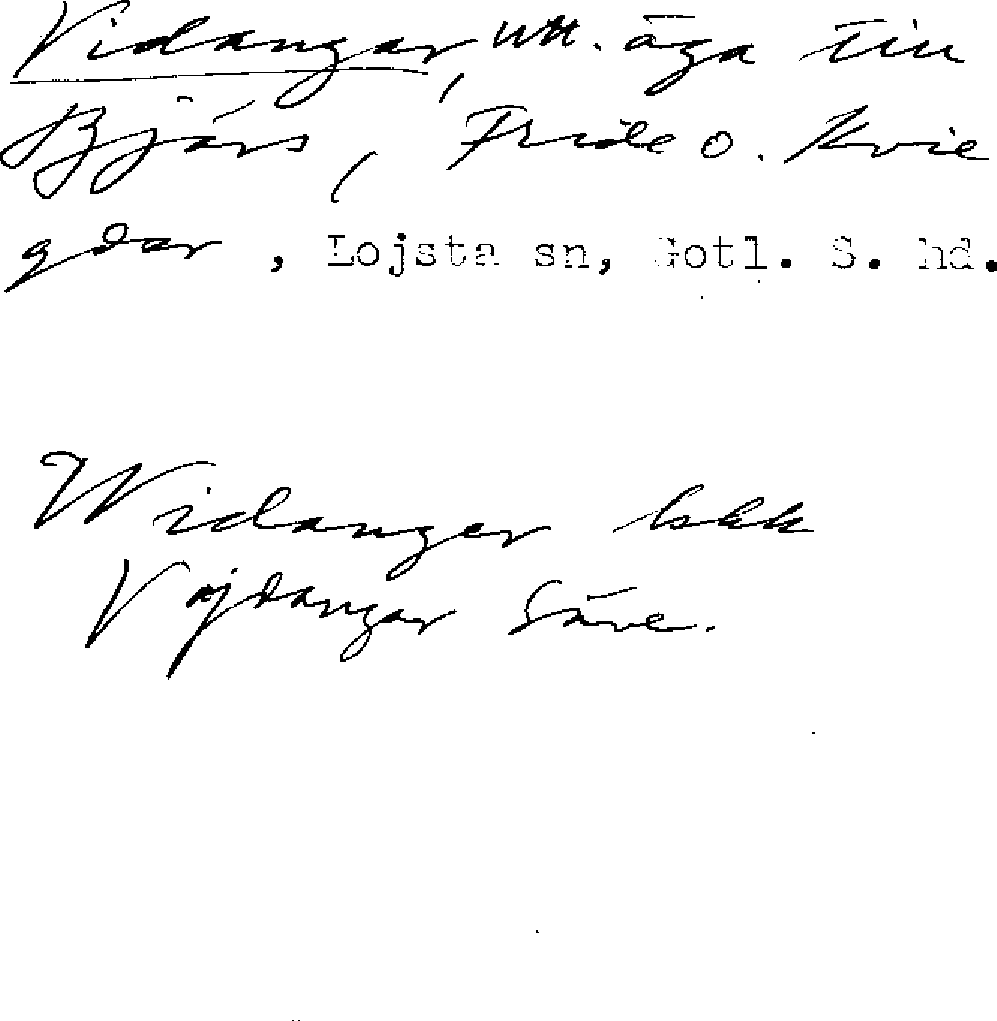 Vidangar, utt. äga till
Bjärs, Fride o. Kvie
gdar, Lojsta sn, Gotl. S. hd.
Widanger lskk
Vajdangar Säve.